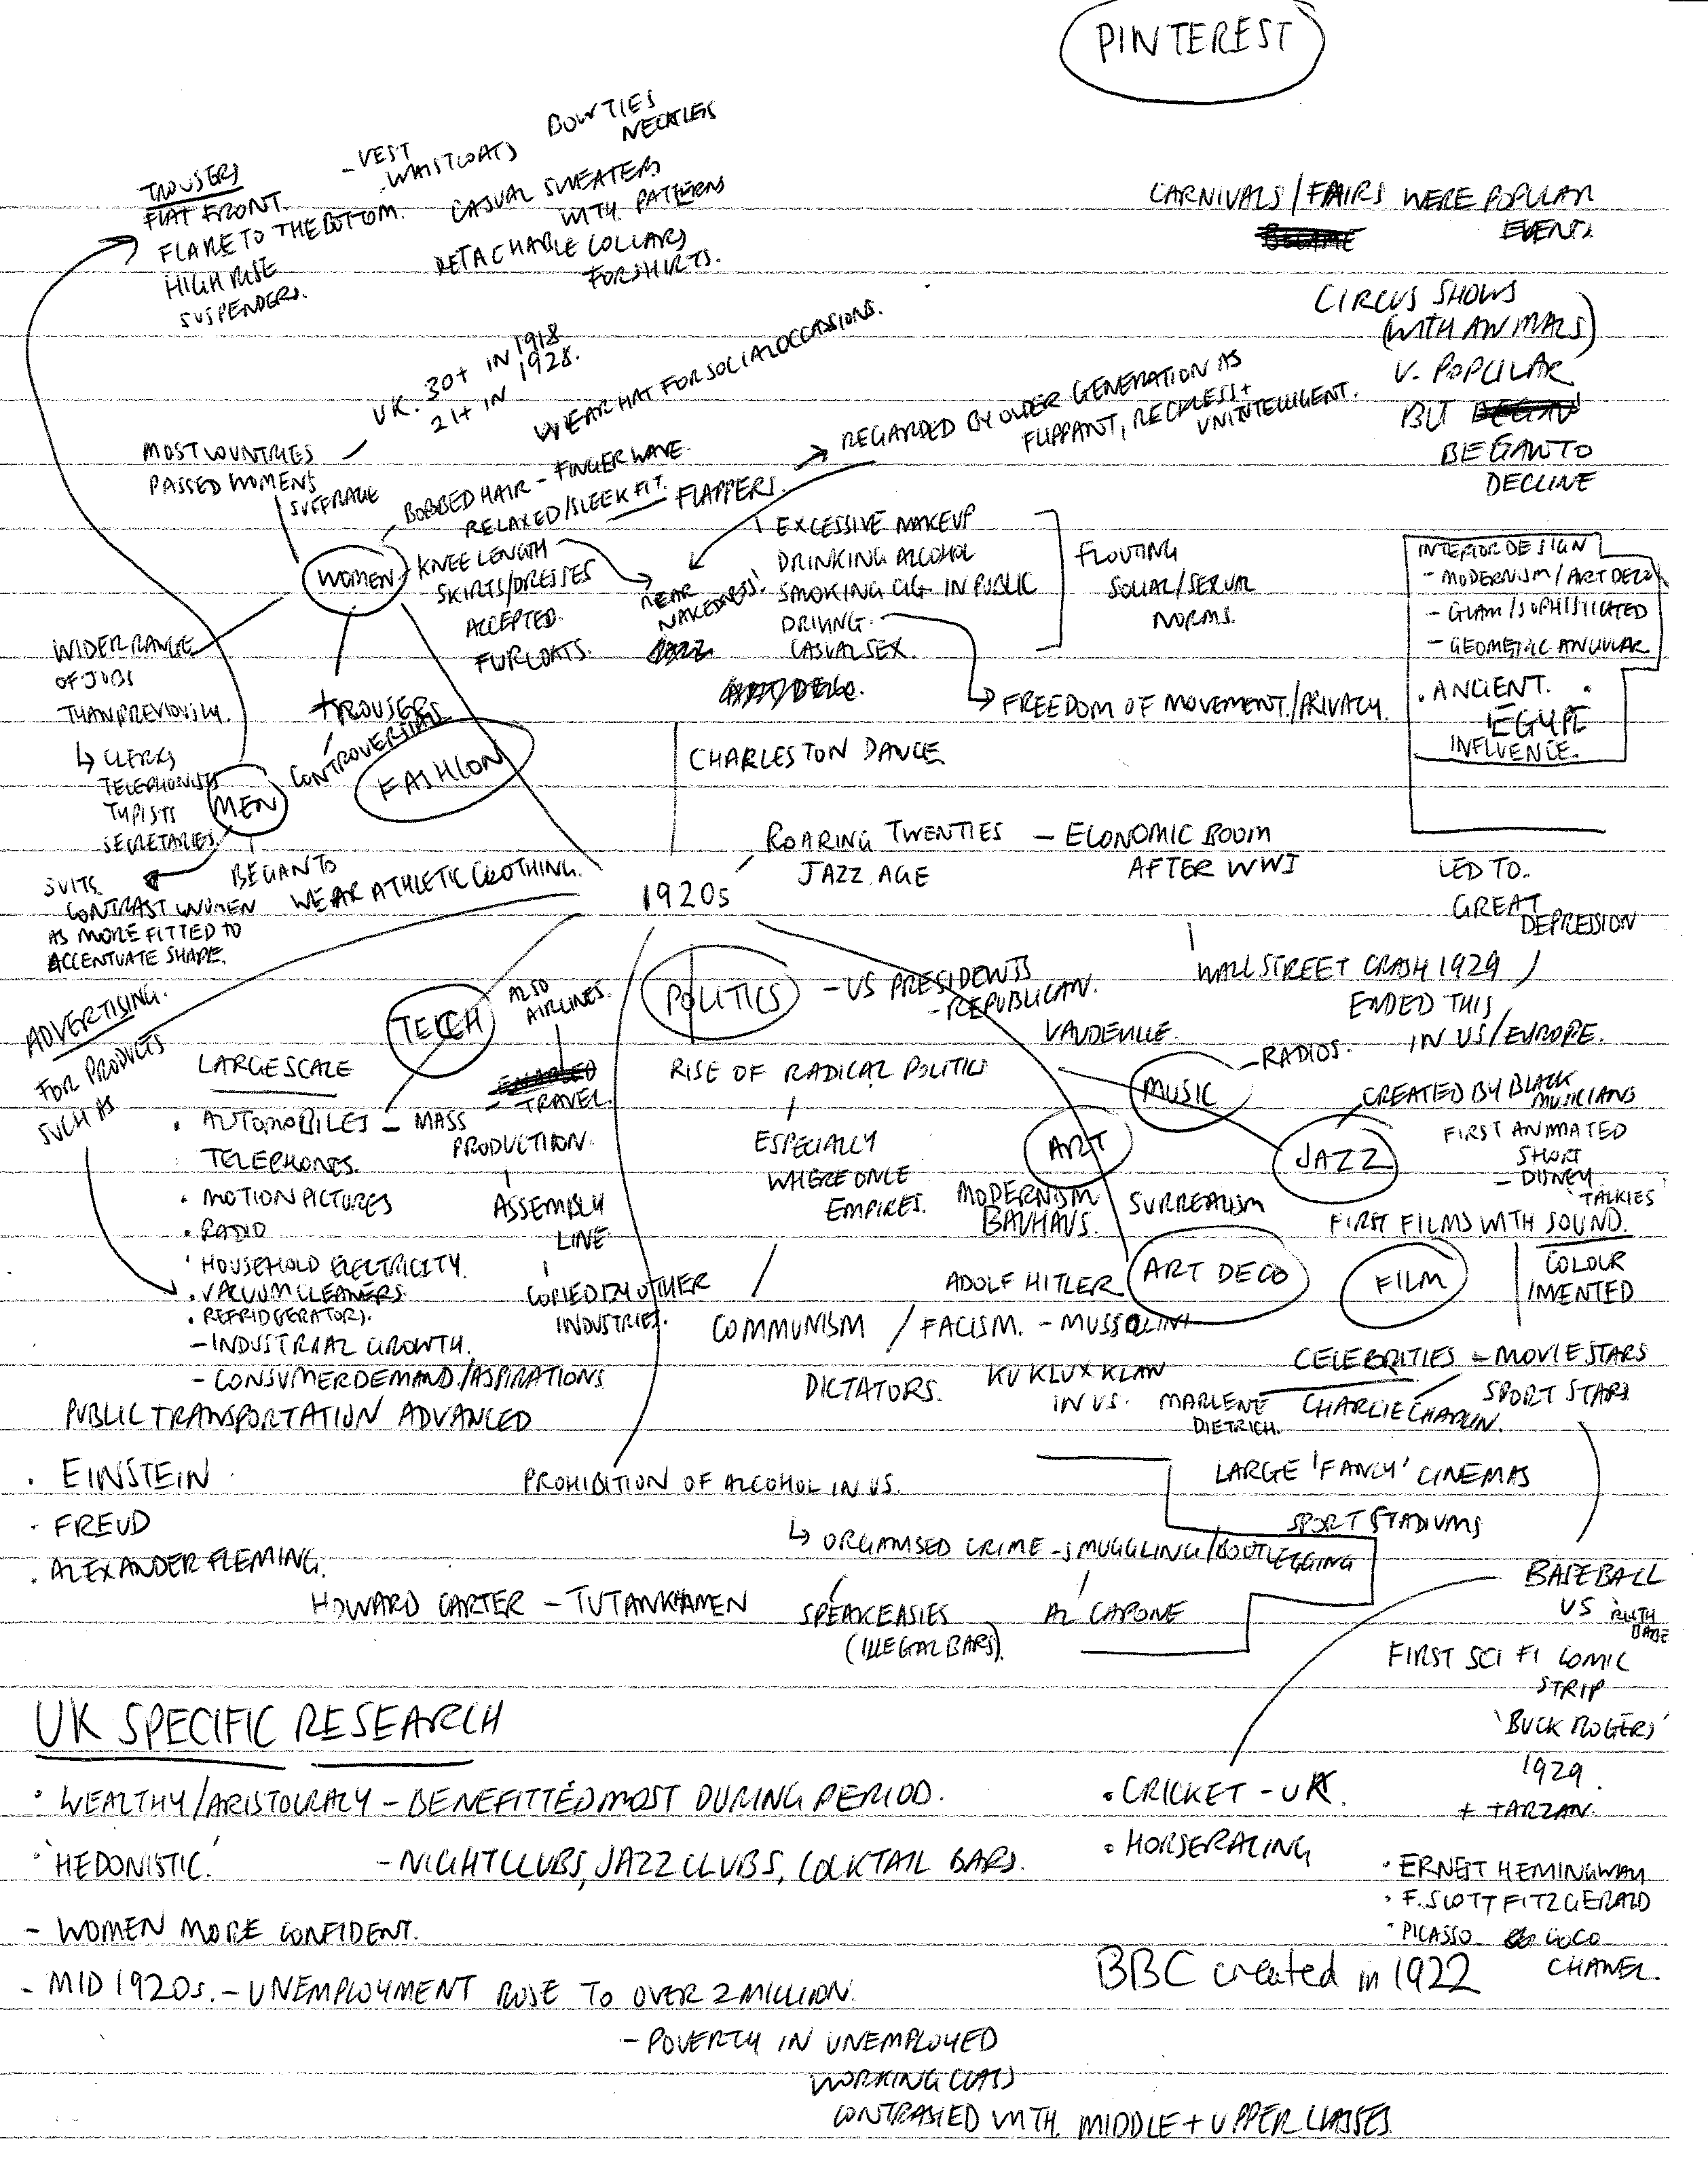 PINTEREST
BOWTIES
NECKTIES
- VEST
WAISTCOATS
CASUAL SWEATERS
WITH PATTERNS
DETACHABLE COLLARS
FOR SHIRTS.
TROUSERS
FLAT FRONT.
FLARE TO THE BOTTOM.
HIGH RISE
SUSPENDERS.
CARNIVALS/FAIRS WERE POPULAR
EVENTS.
CIRCUS SHOWS
(WITH ANIMALS)
V. POPULAR
BUT
BEGAN TO
DECLINE
UK. 30+ IN 1918
21+ IN 1928.
WEAR HAT FOR SOCIAL OCCASSIONS.
MOST COUNTRIES
PASSED WOMENS
SUFFRAGE
BOBBED HAIR - FINGER WAVE.
RELAXED/SLEEK FIT.
FLAPPERS.
REGARDED BY OLDER GENERATION AS
FLIPPANT, RECKLESS +
UNINTELLIGENT.
WOMEN
KNEE LENGTH
SKIRTS/DRESSES
ACCEPTED.
FUR COATS.
'NEAR
NAKEDNESS'.
EXCESSIVE MAKEUP
DRINKING ALCOHOL
SMOKING CIG. IN PUBLIC
DRIVING.
CASUAL SEX.
FLOUTING
SOCIAL/SEXUAL
NORMS.
FREEDOM OF MOVEMENT./PRIVACY.
INTERIOR DESIGN
- MODERNISM/ART DECO
- GLAM/SOPHISTICATED
- GEOMETRIC ANGULAR
. ANCIENT.
EGYPT
INFLUENCE.
WIDER RANGE
OF JOBS
THAN PREVIOUSLY.
↳ CLERKS
TELEPHONISTS
TYPISTS
SECRETARIES.
TROUSERS
CONTROVERTIAL
FASHION
MEN
SUITS.
CONTRAST WOMEN
AS MORE FITTED TO
ACCENTUATE SHAPE.
BEGAN TO
WEAR ATHLETIC CLOTHING.
CHARLESTON DANCE
1920s
ROARING TWENTIES - ECONOMIC BOOM
JAZZ AGE
AFTER WWI
LED TO.
GREAT
DEPRESSION
WALL STREET CRASH 1929
ENDED THIS
IN US/EUROPE.
ADVERTISING.
FOR PRODUCTS
SUCH AS
TECH
ALSO
AIRLINES.
- TRAVEL.
LARGE SCALE
. AUTOMOBILES - MASS
PRODUCTION.
TELEPHONES.
. MOTION PICTURES
. RADIO
. HOUSEHOLD ELECTRICITY.
. VACUUM CLEANERS
. REFRIDGERATORS.
- INDUSTRIAL GROWTH.
- CONSUMER DEMAND./ASPIRATIONS
ASSEMBLY
LINE
COPIED BY OTHER
INDUSTRIES.
PUBLIC TRANSPORTATION ADVANCED
POLITICS
- US PRESIDENTS
- REPUBLICAN.
RISE OF RADICAL POLITICS
ESPECIALLY
WHERE ONCE
EMPIRES.
COMMUNISM / FACISM. - MUSSOLINI
ADOLF HITLER
DICTATORS.
KU KLUX KLAN
IN US.
VAUDEVILLE.
MUSIC
- RADIOS.
JAZZ
CREATED BY BLACK
MUSICIANS
ART
MODERNISM
BAUHAUS.
SURREALISM
ART DECO
FIRST ANIMATED
SHORT
- DISNEY
'TALKIES'
FIRST FILMS WITH SOUND.
FILM
COLOUR
INVENTED
CELEBRITIES - MOVIE STARS
SPORT STARS
MARLENE
DIETRICH.
CHARLIE CHAPLIN.
LARGE 'FANCY' CINEMAS
SPORT STADIUMS
. EINSTEIN
. FREUD
. ALEXANDER FLEMING.
HOWARD CARTER - TUTANKHAMEN
PROHIBITION OF ALCOHOL IN US.
↳ ORGANISED CRIME - SMUGGLING/BOOTLEGGING
SPEAKEASIES
(ILLEGAL BARS).
AL CAPONE
BASEBALL
US
RUTH
BABE
FIRST SCI FI COMIC
STRIP
'BUCK ROGERS'
1929.
+ TARZAN.
UK SPECIFIC RESEARCH
. WEALTHY/ARISTOCRACY - BENEFITTED MOST DURING PERIOD.
'HEDONISTIC.' - NIGHTCLUBS, JAZZ CLUBS, COCKTAIL BARS.
- WOMEN MORE CONFIDENT.
- MID 1920s. - UNEMPLOYMENT ROSE TO OVER 2 MILLION.
- POVERTY IN UNEMPLOYED
WORKING CLASS
CONTRASTED WITH MIDDLE + UPPER CLASSES
. CRICKET - UK.
. HORSERACING
. ERNEST HEMINGWAY
. F. SCOTT FITZGERALD
. PICASSO COCO
CHANEL.
BBC created in 1922